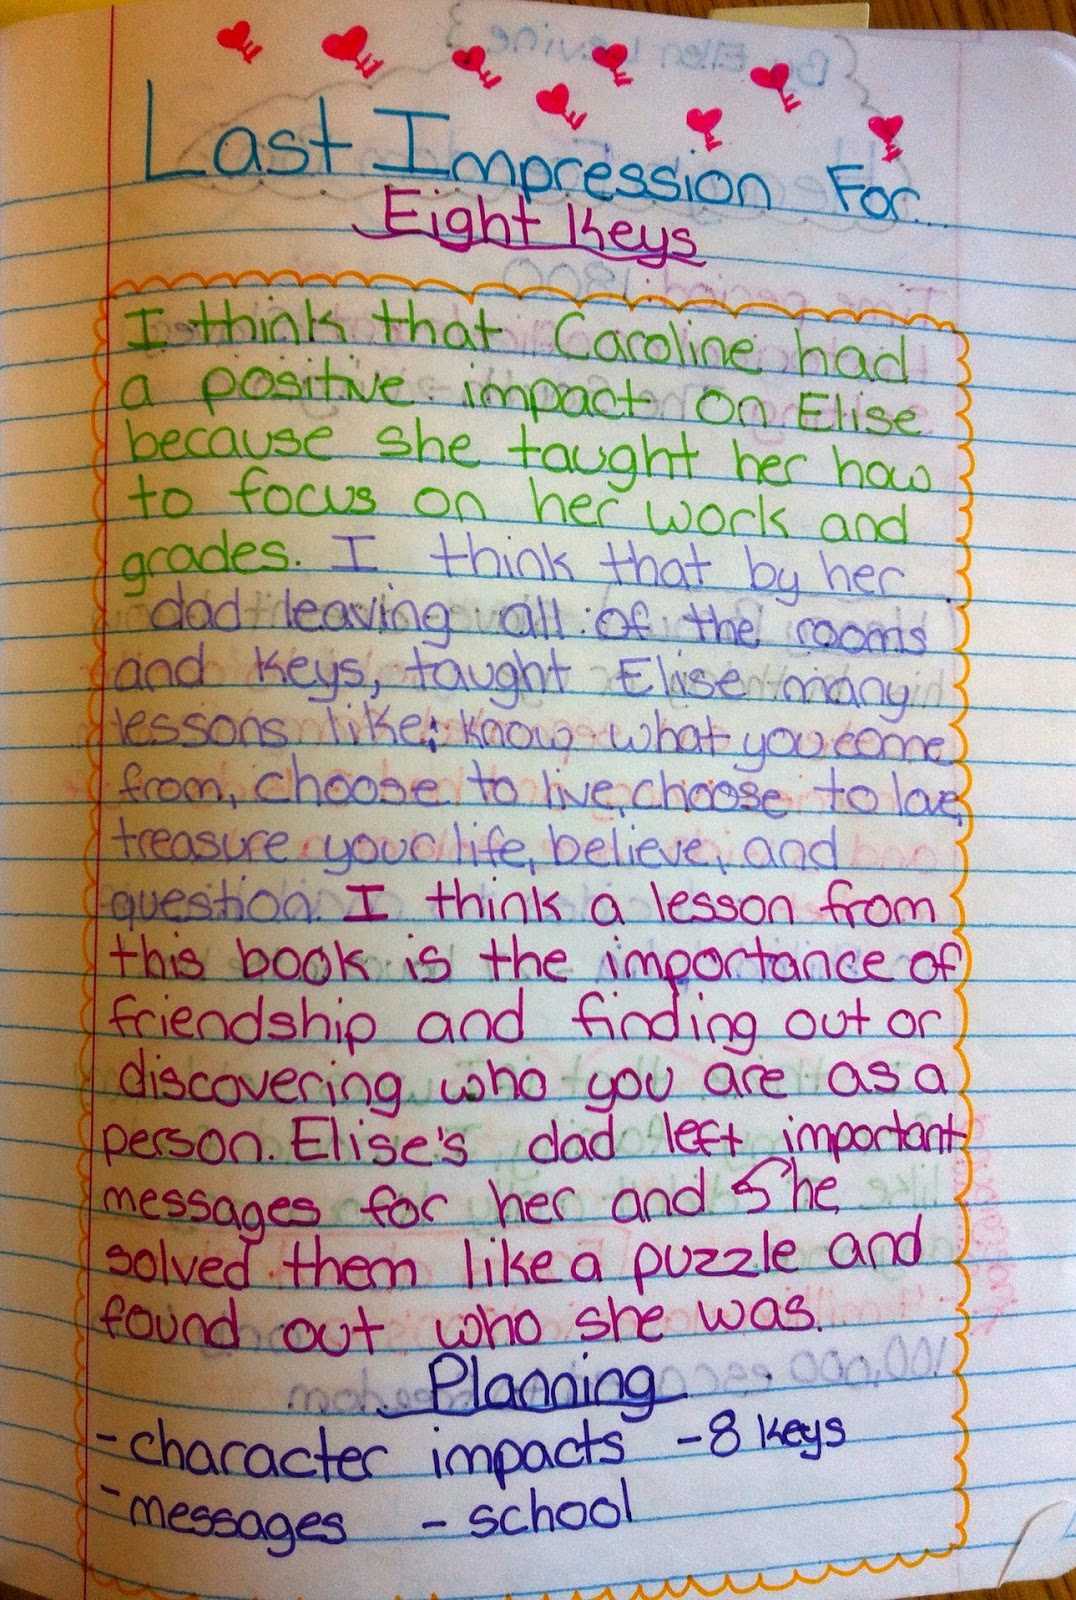 Last Impression For
Eight Keys
I think that Caroline had
a positive impact on Elise
because she taught her how
to focus on her work and
grades. I think that by her
dad leaving all of the rooms
and keys, taught Elise many
lessons like: know what you come
from, choose to live, choose to love,
treasure your life, believe, and
question. I think a lesson from
this book is the importance of
friendship and finding out or
discovering who you are as a
person. Elise's dad left important
messages for her and She
solved them like a puzzle and
found out who she was.
Planning
- character impacts - 8 keys
- messages - school